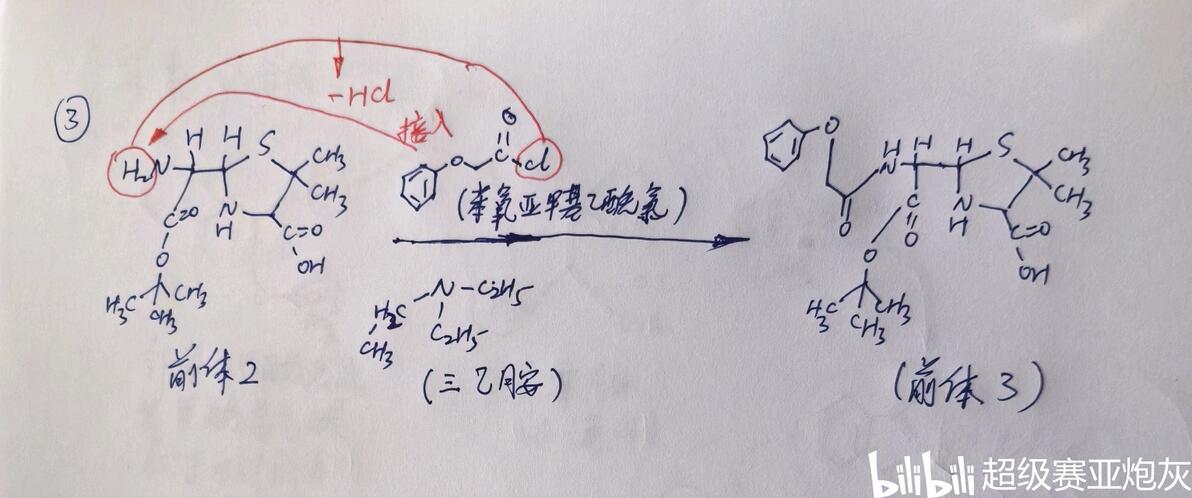 ③
-HCl
接入
H₂N H H S CH₃
CH₃
C=O N H C=O
O OH
H₃C CH₃
CH₃
前体2
O
O C Cl
(苯氧亚甲基乙酰氯)
H₂C N C₂H₅
CH₃ C₂H₅
(三乙胺)
O H N H H S CH₃
CH₃
O C O N H C=O
O OH
H₃C C CH₃
H₃
(前体3)
bilibili 超级赛亚炮灰